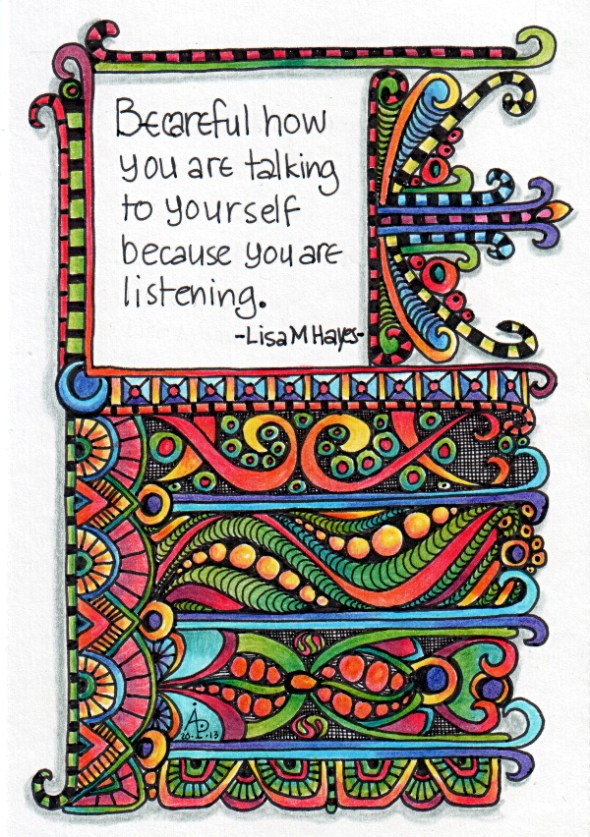 Becareful how
you are talking
to yourself
because you are
listening.
-Lisa M Hayes-